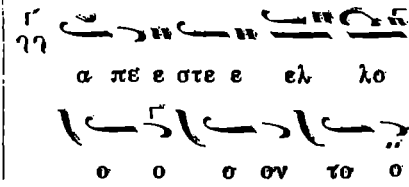 α πε ε στε ε ελ λο
ο ο ο ον το ο